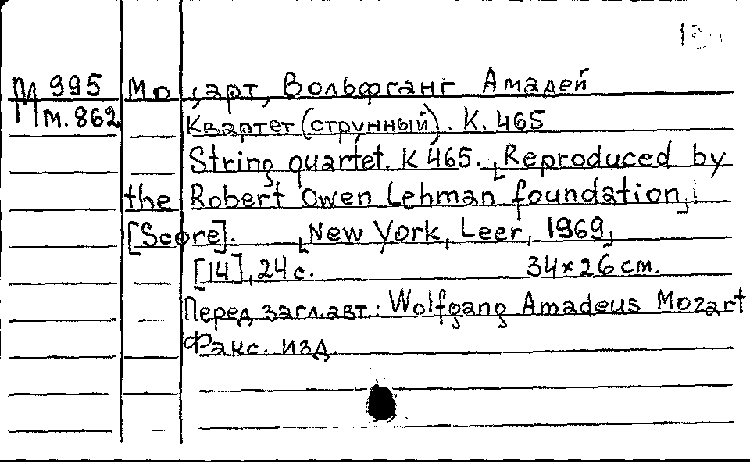 М 995 Моцарт, Вольфганг Амадей
М. 862 Квартет (струнный). К. 465
String quartet. K 465. [Reproduced by
the Robert Owen Lehman foundation].
[Score]. [New York, Leer, 1969]
[14], 24 с. 34×26 cm.
Перед заглавт.: Wolfgang Amadeus Mozart
Факс. изд.